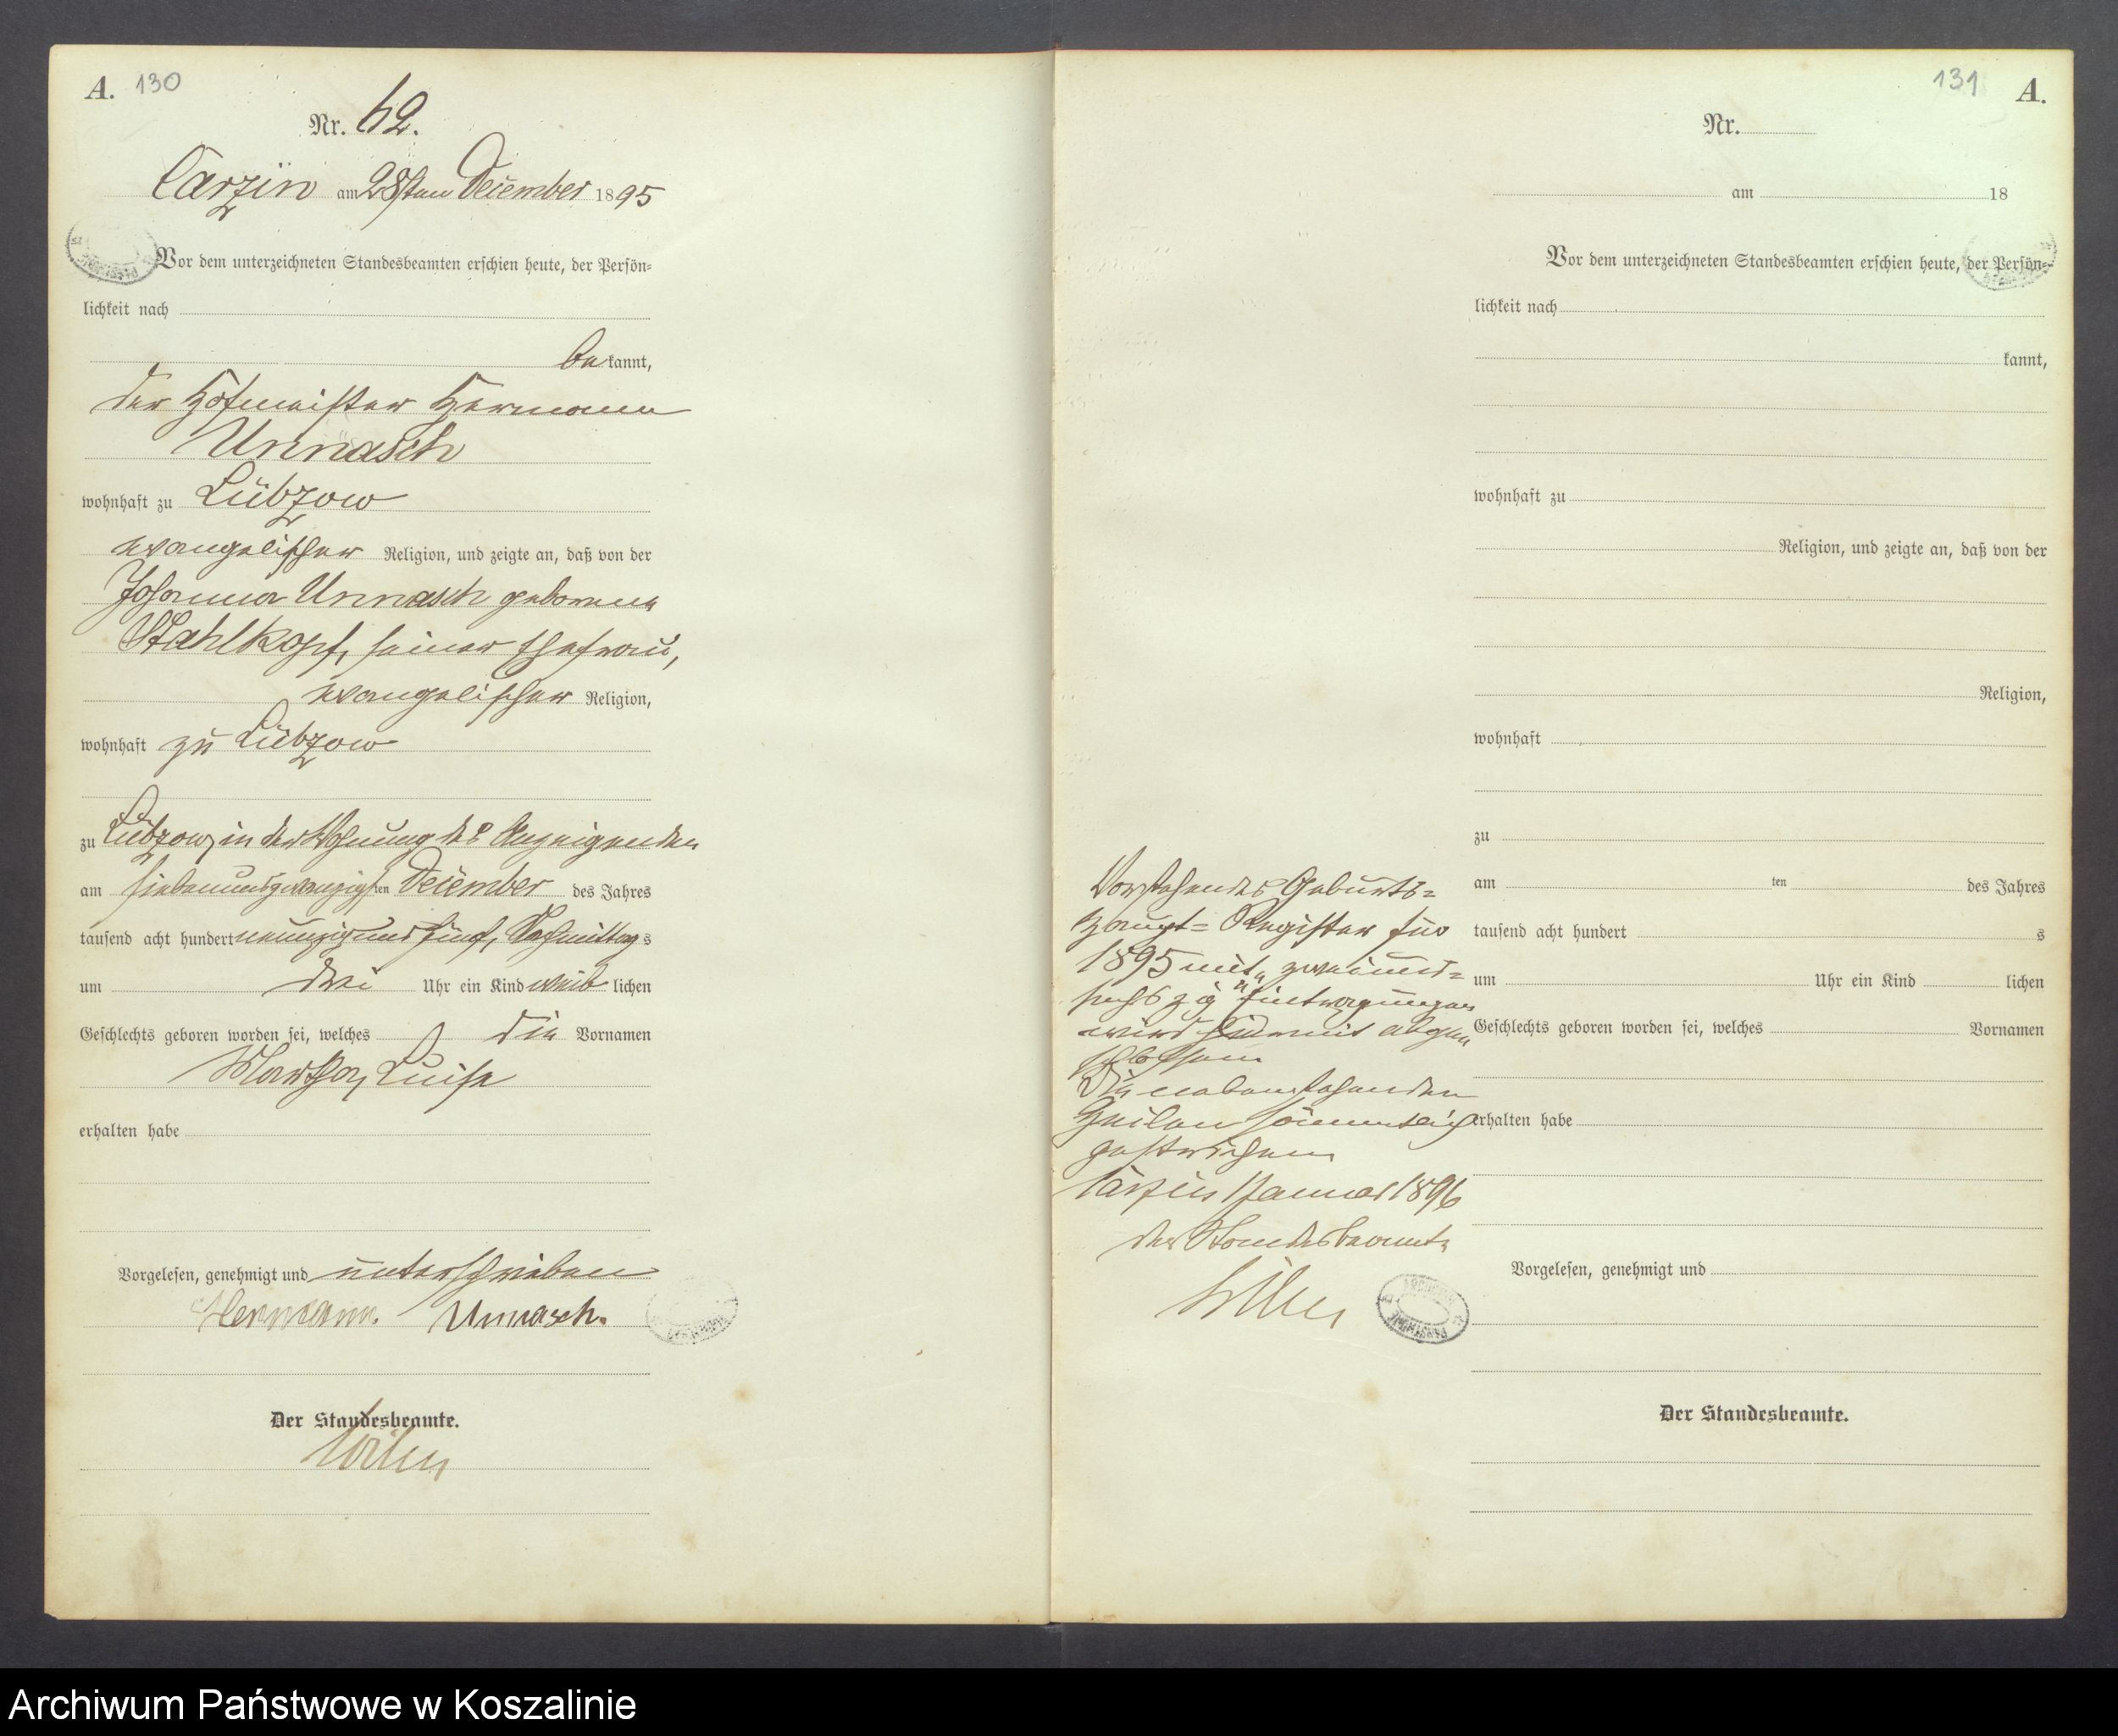 A. 130
Nr. 62.
Carzin am 28sten December 1895
Vor dem unterzeichneten Standesbeamten erschien heute, der Persön=
lichkeit nach
bekannt,
der Hofmeister Hermann
Unnasch
wohnhaft zu Lübzow
evangelischer Religion, und zeigte an, daß von der
Johanna Unnasch geborene
Stahlkopf, seiner Ehefrau,
evangelischer Religion,
wohnhaft zu Lübzow
zu Lübzow, in der Wohnung des Anzeigenden
am siebenundzwanzigsten December des Jahres
tausend acht hundert neunzig und fünf, Nachmittags
um drei Uhr ein Kind weiblichen
Geschlechts geboren worden sei, welches die Vornamen
Martha, Luise
erhalten habe
Vorgelesen, genehmigt und unterschrieben
Hermann. Unnasch.
Der Standesbeamte.
131 A.
Nr.
am 18
Vor dem unterzeichneten Standesbeamten erschien heute, der Persön=
lichkeit nach
kannt,
wohnhaft zu
Religion, und zeigte an, daß von der
Religion,
wohnhaft
zu
am ten des Jahres
tausend acht hundert s
um Uhr ein Kind lichen
Geschlechts geboren worden sei, welches Vornamen
erhalten habe
Vorgelesen, genehmigt und
Der Standesbeamte.
Vorstehendes Geburts=
Haupt=Register für
1895 mit "zweiund=
sechszig" Eintragungen
wird hiermit abge
schlossen
Die nebenstehenden
Zeilen sämmtlich
gestrichen
Carzin 1 Januar 1896
der Standesbeamte
Archiwum Państwowe w Koszalinie